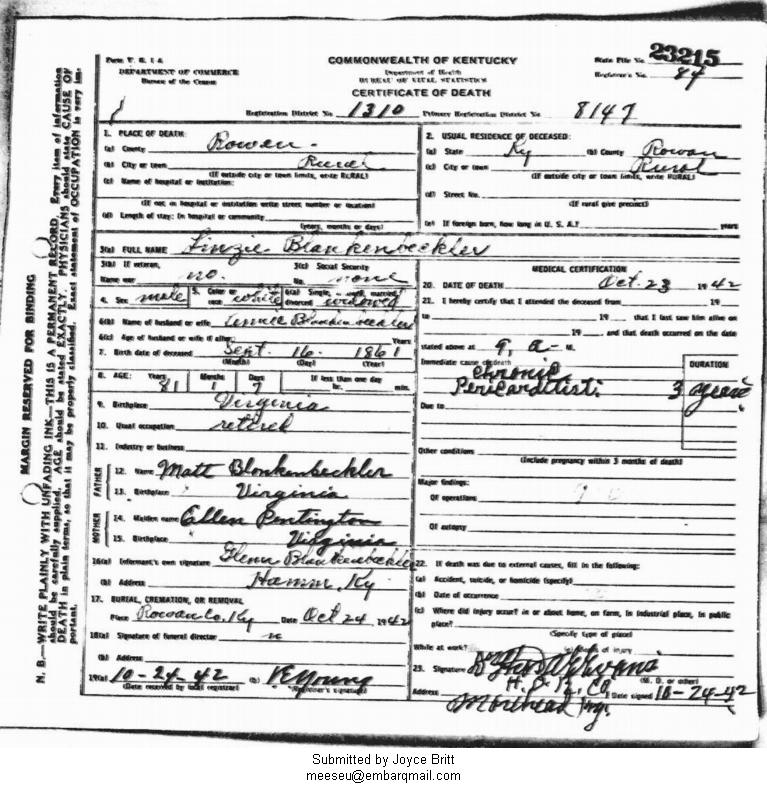 Form V. S. 1 A
DEPARTMENT OF COMMERCE
Bureau of the Census
COMMONWEALTH OF KENTUCKY
Department of Health
BUREAU OF VITAL STATISTICS
CERTIFICATE OF DEATH
State File No. 23215
Registrar's No. 84
Registration District No. 1310 Primary Registration District No. 8147
MARGIN RESERVED FOR BINDING
N. B.—WRITE PLAINLY WITH UNFADING INK—THIS IS A PERMANENT RECORD. Every item of information
should be carefully supplied. AGE should be stated EXACTLY. PHYSICIANS should state CAUSE OF
DEATH in plain terms, so that it may be properly classified. Exact statement of OCCUPATION is very im-
portant.
1. PLACE OF DEATH:
(a) County Rowan
(b) City or town Rural
(If outside city or town limits, write RURAL)
(c) Name of hospital or institution:
(If not in hospital or institution write street number or location)
(d) Length of stay: In hospital or community
(years, months or days)
2. USUAL RESIDENCE OF DECEASED:
(a) State Ky (b) County Rowan
(c) City or town Rural
(If outside city or town limits, write RURAL)
(d) Street No.
(If rural give precinct)
(e) If foreign born, how long in U. S. A.? years
3(a) FULL NAME Linzie Blankenbeckler
3(b) If veteran, 3(c) Social Security
Name war no. No. none
4. Sex male 5. Color or race white 6(a) Single, married, divorced widowed
6(b) Name of husband or wife Blankenbeckler
6(c) Age of husband or wife if alive Years
7. Birth date of deceased Sept. 16. 1861
(Month) (Day) (Year)
8. AGE: Years Months Days If less than one day
81 1 7 hr. min.
9. Birthplace Virginia
10. Usual occupation retired
11. Industry or business
FATHER
12. Name Matt Blankenbeckler
13. Birthplace Virginia
MOTHER
14. Maiden name Ellen Pentington
15. Birthplace Virginia
16(a) Informant's own signature Glenn Blankenbeckler
(b) Address Hamm, Ky
17. BURIAL, CREMATION, OR REMOVAL
Place Rowan Co, Ky Date Oct 24 1942
18(a) Signature of funeral director
(b) Address
19(a) 10-24-42 (b) VE Young
(Date received by local registrar) (Registrar's signature)
MEDICAL CERTIFICATION
20. DATE OF DEATH Oct. 23 1942
21. I hereby certify that I attended the deceased from 19
to 19 that I last saw him alive on
19 and that death occurred on the date
stated above at 9, a- M.
Immediate cause of death DURATION
Chronic
Pericarditist: 3 years
Due to
Other conditions
(Include pregnancy within 3 months of death)
Major findings:
Of operations
Of autopsy
22. If death was due to external causes, fill in the following:
(a) Accident, suicide, or homicide (specify)
(b) Date of occurrence
(c) Where did injury occur? in or about home, on farm, in industrial place, in public
place?
(Specify type of place)
While at work? (e) Means of injury
23. Signature Dr Evans
(M. D. or other)
Address Morehead Ky. Date signed 10-24-42
Submitted by Joyce Britt
meeseu@embarqmail.com